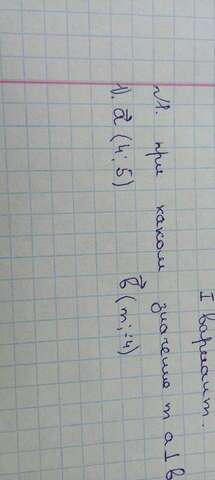 I вариант.
№1. при каком значение m a⊥b
1). a⃗ (4; 5) b⃗ (m; -4)